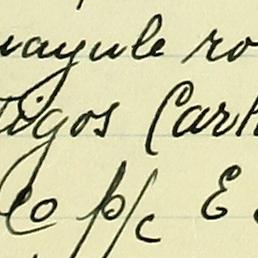 uayule ro
Tigos Carh
co p/c E